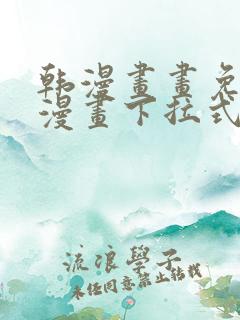 韩漫畫畫免
漫畫下拉式
流浪學子
未经同意禁止转载